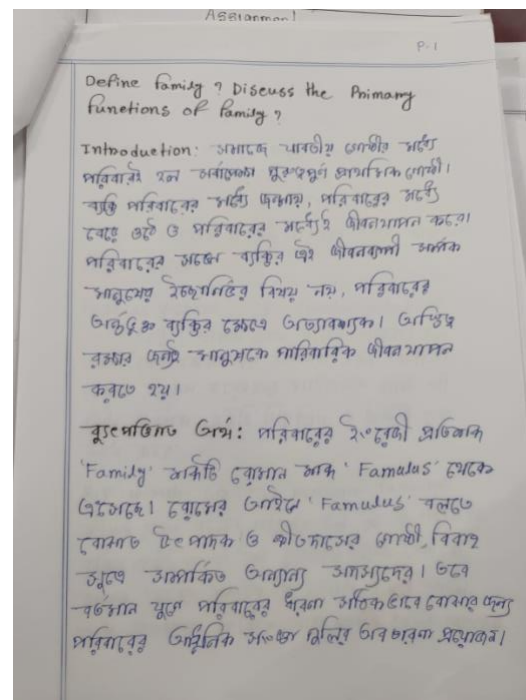 Assignment
P-1
Define family? Discuss the Primary
Functions of Family?
Introduction: সমাজে যাবতীয় গোষ্ঠীর মধ্যে
পরিবারই হল সর্বাপেক্ষা গুরুত্বপূর্ণ প্রাথমিক গোষ্ঠী।
ব্যক্তি পরিবারের মধ্যে জন্মায়, পরিবারের মধ্যে
বেড়ে ওঠে ও পরিবারের মধ্যেই জীবনযাপন করে।
পরিবারের সঙ্গে ব্যক্তির এই জীবনব্যাপী সম্পর্ক
মানুষের ইচ্ছানির্ভর বিষয় নয়, পরিবারের
অর্ন্তভুক্ত ব্যক্তির ক্ষেত্রে অত্যাবশ্যক। অস্তিত্ব
রক্ষার জন্যই মানুষকে পারিবারিক জীবন যাপন
করতে হয়।
ব্যুৎপত্তিগত অর্থ: পরিবারের ইংরেজী প্রতিশব্দ
'Family' শব্দটি রোমান শব্দ 'Famulus' থেকে
এসেছে। রোমের আইনে 'Famulus' বলতে
বোঝাত উৎপাদক ও ক্রীতদাসের গোষ্ঠী, বিবাহ
সূত্রে সম্পর্কিত অন্যান্য সদস্যদের। তবে
বর্তমান যুগে পরিবারের ধারণা সঠিকভাবে বোঝার জন্য
পরিবারের আধুনিক সংজ্ঞা গুলির অবতারণা প্রয়োজন।